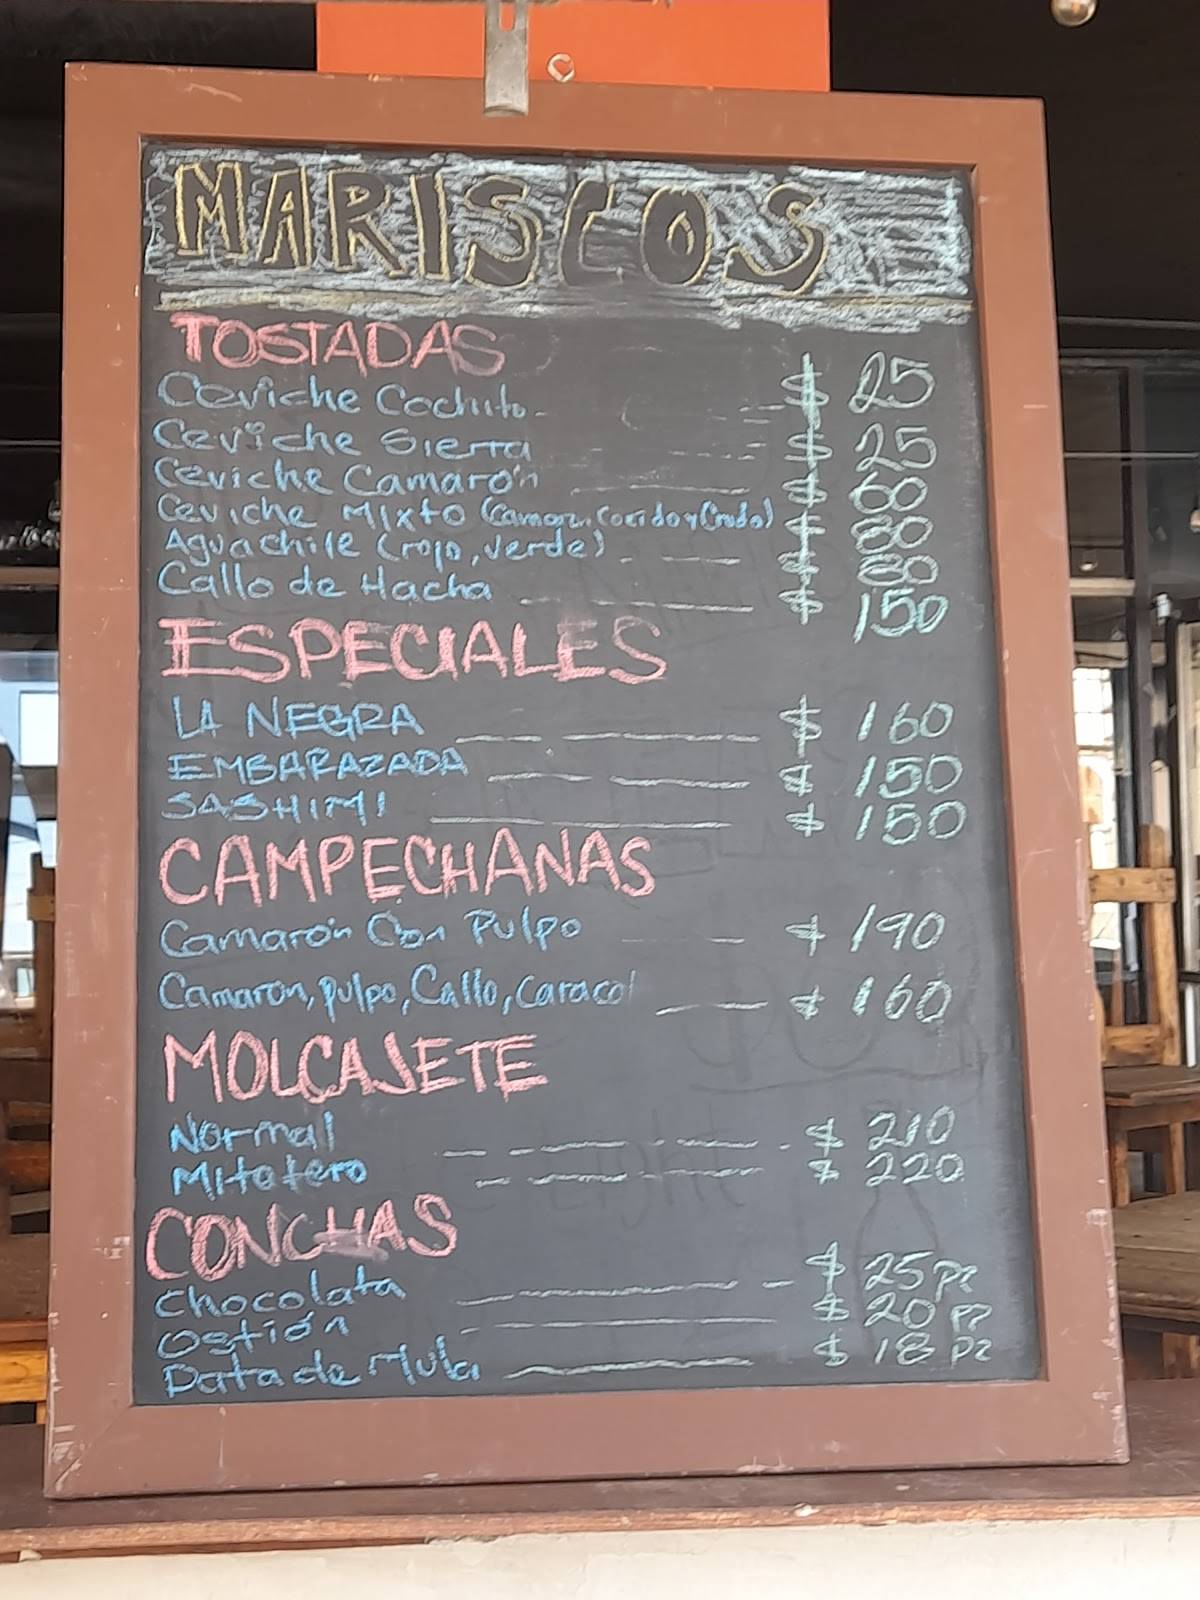 MARISCOS
TOSTADAS
Ceviche Cochito $ 25
Ceviche Sierra $ 25
Ceviche Camarón $ 60
Ceviche Mixto (Camaron, Cocido y Crudo) $ 80
Aguachile (rojo, verde) $ 80
Callo de Hacha $ 150
ESPECIALES
LA NEGRA $ 160
EMBARAZADA $ 150
SASHIMI $ 150
CAMPECHANAS
Camarón Con Pulpo $ 190
Camaron, pulpo, Callo, Caracol $ 160
MOLCAJETE
Normal $ 210
Mitotero $ 220
CONCHAS
Chocolata $ 25 pz
Ostión $ 20 pz
Pata de Mula $ 18 pz